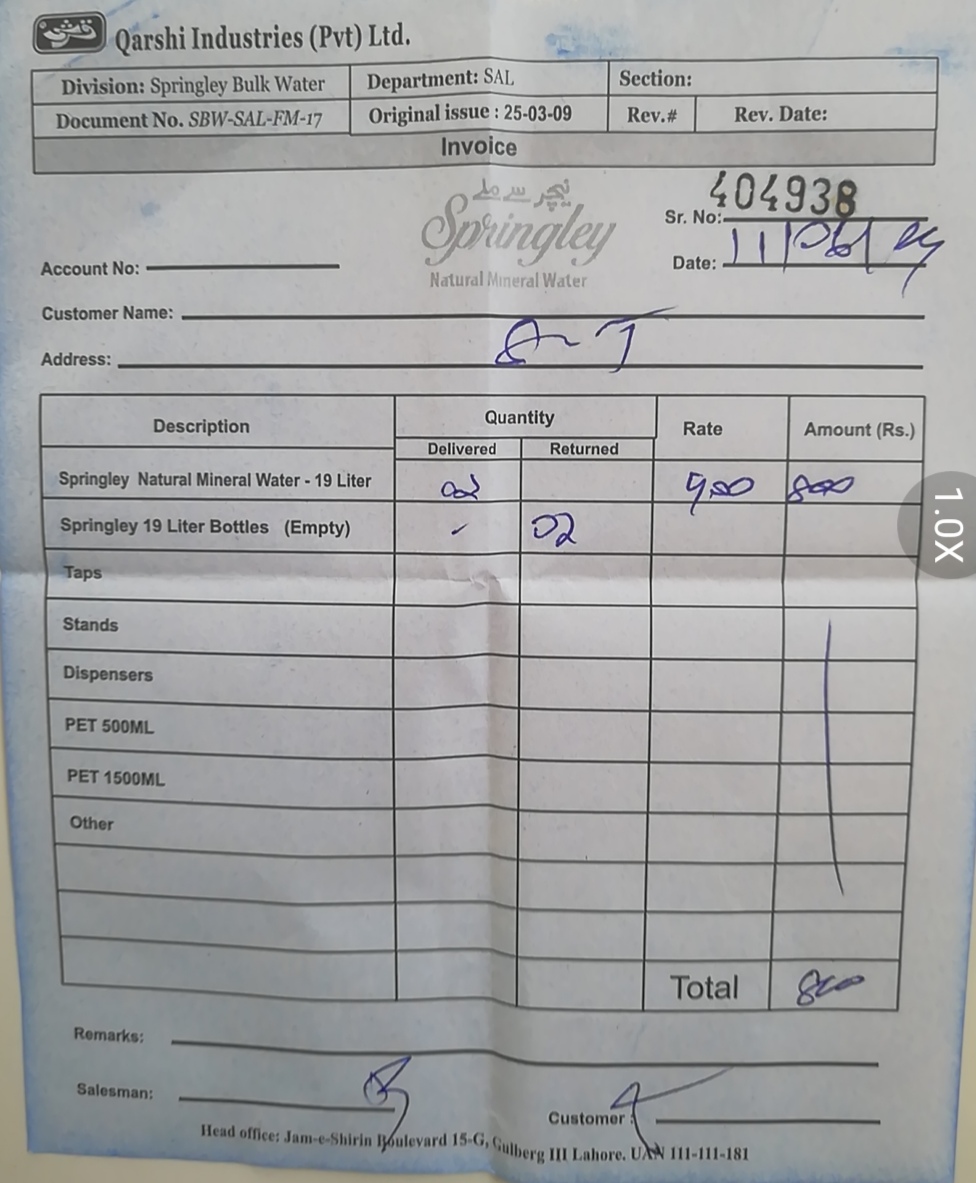 قرشی
Qarshi Industries (Pvt) Ltd.
Division: Springley Bulk Water Department: SAL Section:
Document No. SBW-SAL-FM-17 Original issue : 25-03-09 Rev.# Rev. Date:
Invoice
نیچر سے ملے
Springley
Natural Mineral Water
404938
Sr. No:
Account No: Date: 11/06/
Customer Name:
Address:
Description Quantity Rate Amount (Rs.)
Delivered Returned
Springley Natural Mineral Water - 19 Liter 02 400 800
Springley 19 Liter Bottles (Empty) - 02
Taps
Stands
Dispensers
PET 500ML
PET 1500ML
Other
Total 800
Remarks:
Salesman:
Customer :
Head office: Jam-e-Shirin Boulevard 15-G, Gulberg III Lahore. UAN 111-111-181
1.0X